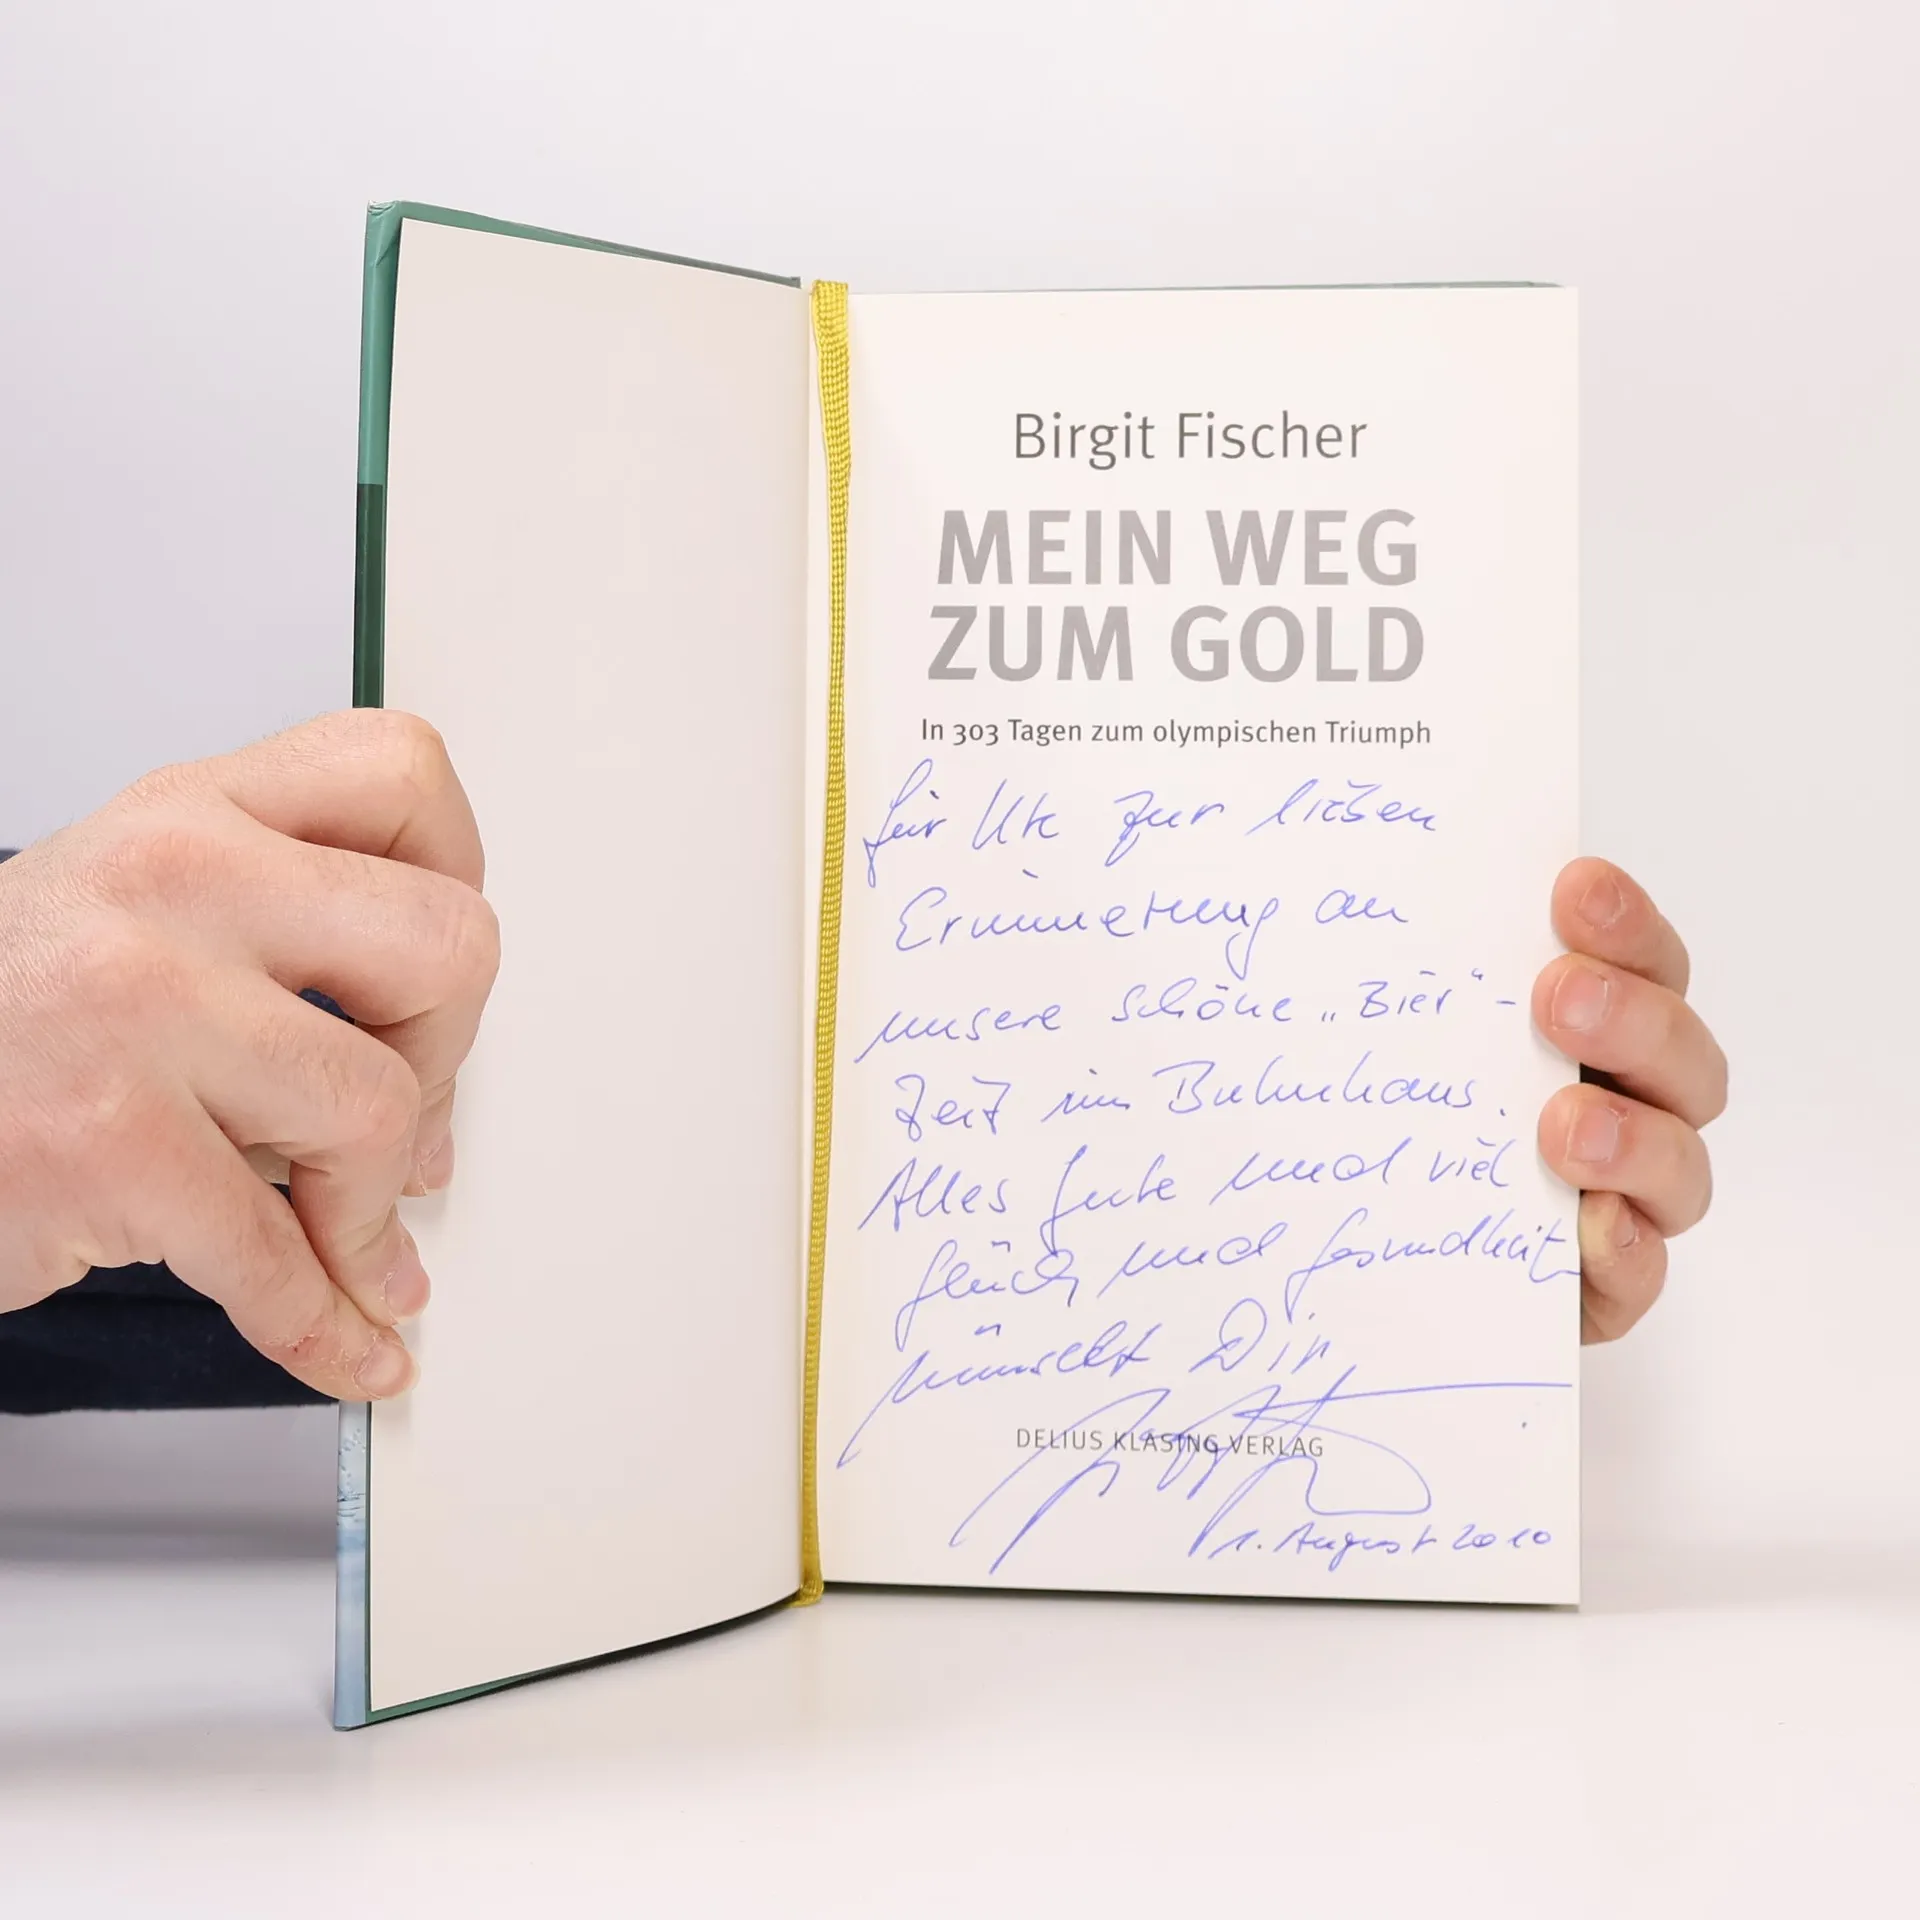 Birgit Fischer
MEIN WEG
ZUM GOLD
In 303 Tagen zum olympischen Triumph
für Ute zur lieben
Erinnerung an
unsere schöne „Bier"-
Zeit im Bahnhaus.
Alles Gute und viel
Glück und Gesundheit
wünscht Dir,
DELIUS KLASING VERLAG
1. August 2010